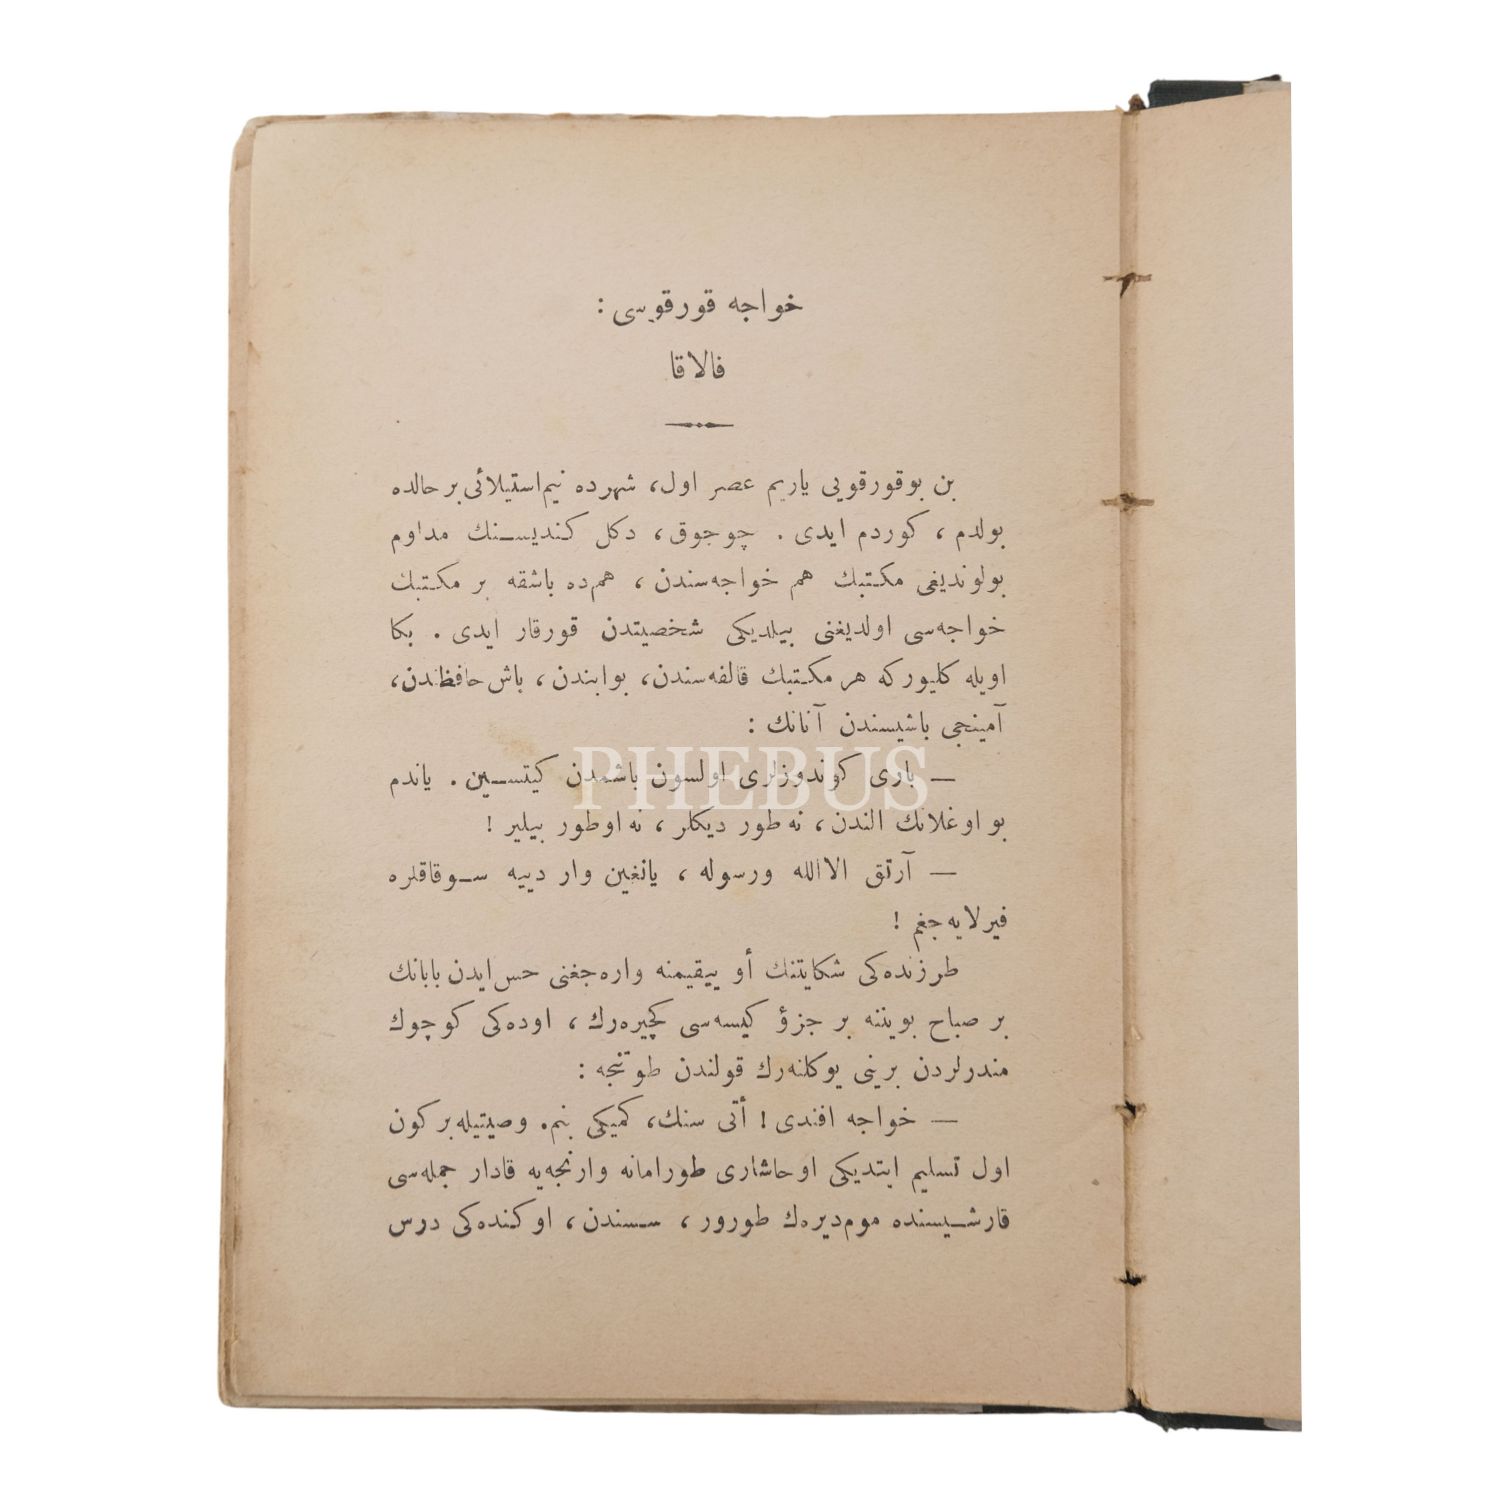 خواجه قورقوسی :
فالاقا
بن بو قورقویی یاریم عصر اول، شهرده نیم استیلائی بر حالده
بولدم ، كوردم ایدی . چوجوق ، دكل كندیسنك مداوم
بولوندیغی مكتبك هم خواجه‌سندن ، هم‌ده باشقه بر مكتبك
خواجه‌سی اولدیغنی بیلدیكی شخصیتدن قورقار ایدی . بكا
اویله كلیوركه هر مكتبك قالفه‌سندن، بوابندن ، باش حافظندن،
آمینجی باشیسندن آنانك :
— باری كوندوزلری اولسون باشمدن كیتسین . یاندم
بو اوغلانك الندن ، نه طور دیكلر ، نه اوطور بیلیر !
— آرتق الا الله ورسوله ، یانغین وار دییه سوقاقلره
فیرلایه‌جغم !
طرزنده‌كی شكایتنك أو ییقیمنه واره‌جغنی حس ایدن بابانك
بر صباح بویننه بر جزؤ كیسه‌سی كچیره‌رك ، اوده‌كی كوچوك
مندرلردن برینی یوكلنه‌رك قولندن طوتنجه :
— خواجه افندی ! أتی سنك، كمیكی بنم. وصیتیله بر كون
اول تسلیم ایتدیكی او حاشاری طورامانه وارنجه‌یه قادار جمله‌سی
قارشیسنده موم دیره‌ك طورور ، سسندن ، اوكنده‌كی درس
PHEBUS